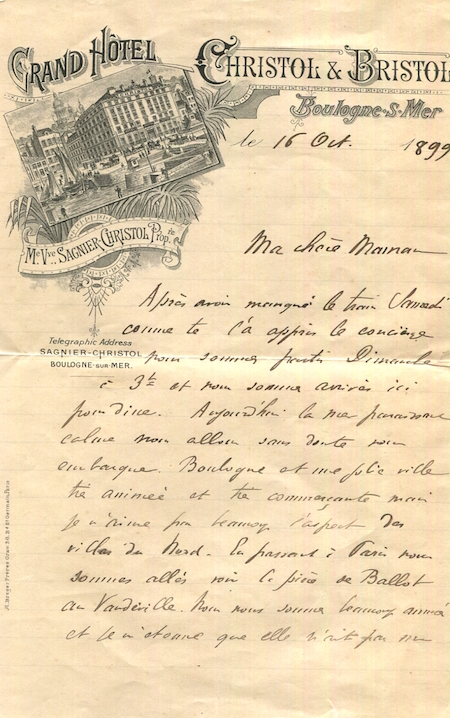 GRAND HÔTEL
CHRISTOL & BRISTOL
Boulogne-s-Mer
le 16 Oct. 1899
Me Vve SAGNIER-CHRISTOL Propre
Ma chère Maman
Après avoir manqué le train Samedi
comme te l'a appris le concierge
Telegraphic Address
SAGNIER-CHRISTOL
BOULOGNE-SUR-MER.
nous sommes partis Dimanche
à 3h et nous sommes arrivés ici
pour diner. Aujourd'hui la mer paraissant
calme nous allons sans doute nous
embarquer. Boulogne est une jolie ville
très animée et très commerçante mais
je n'aime pas beaucoup l'aspect des
villes du Nord. En passant à Paris nous
sommes allés voir la pièce de Ballot
au Vaudeville. Nous nous sommes beaucoup amusés
et je m'étonne que elle n'ait pas